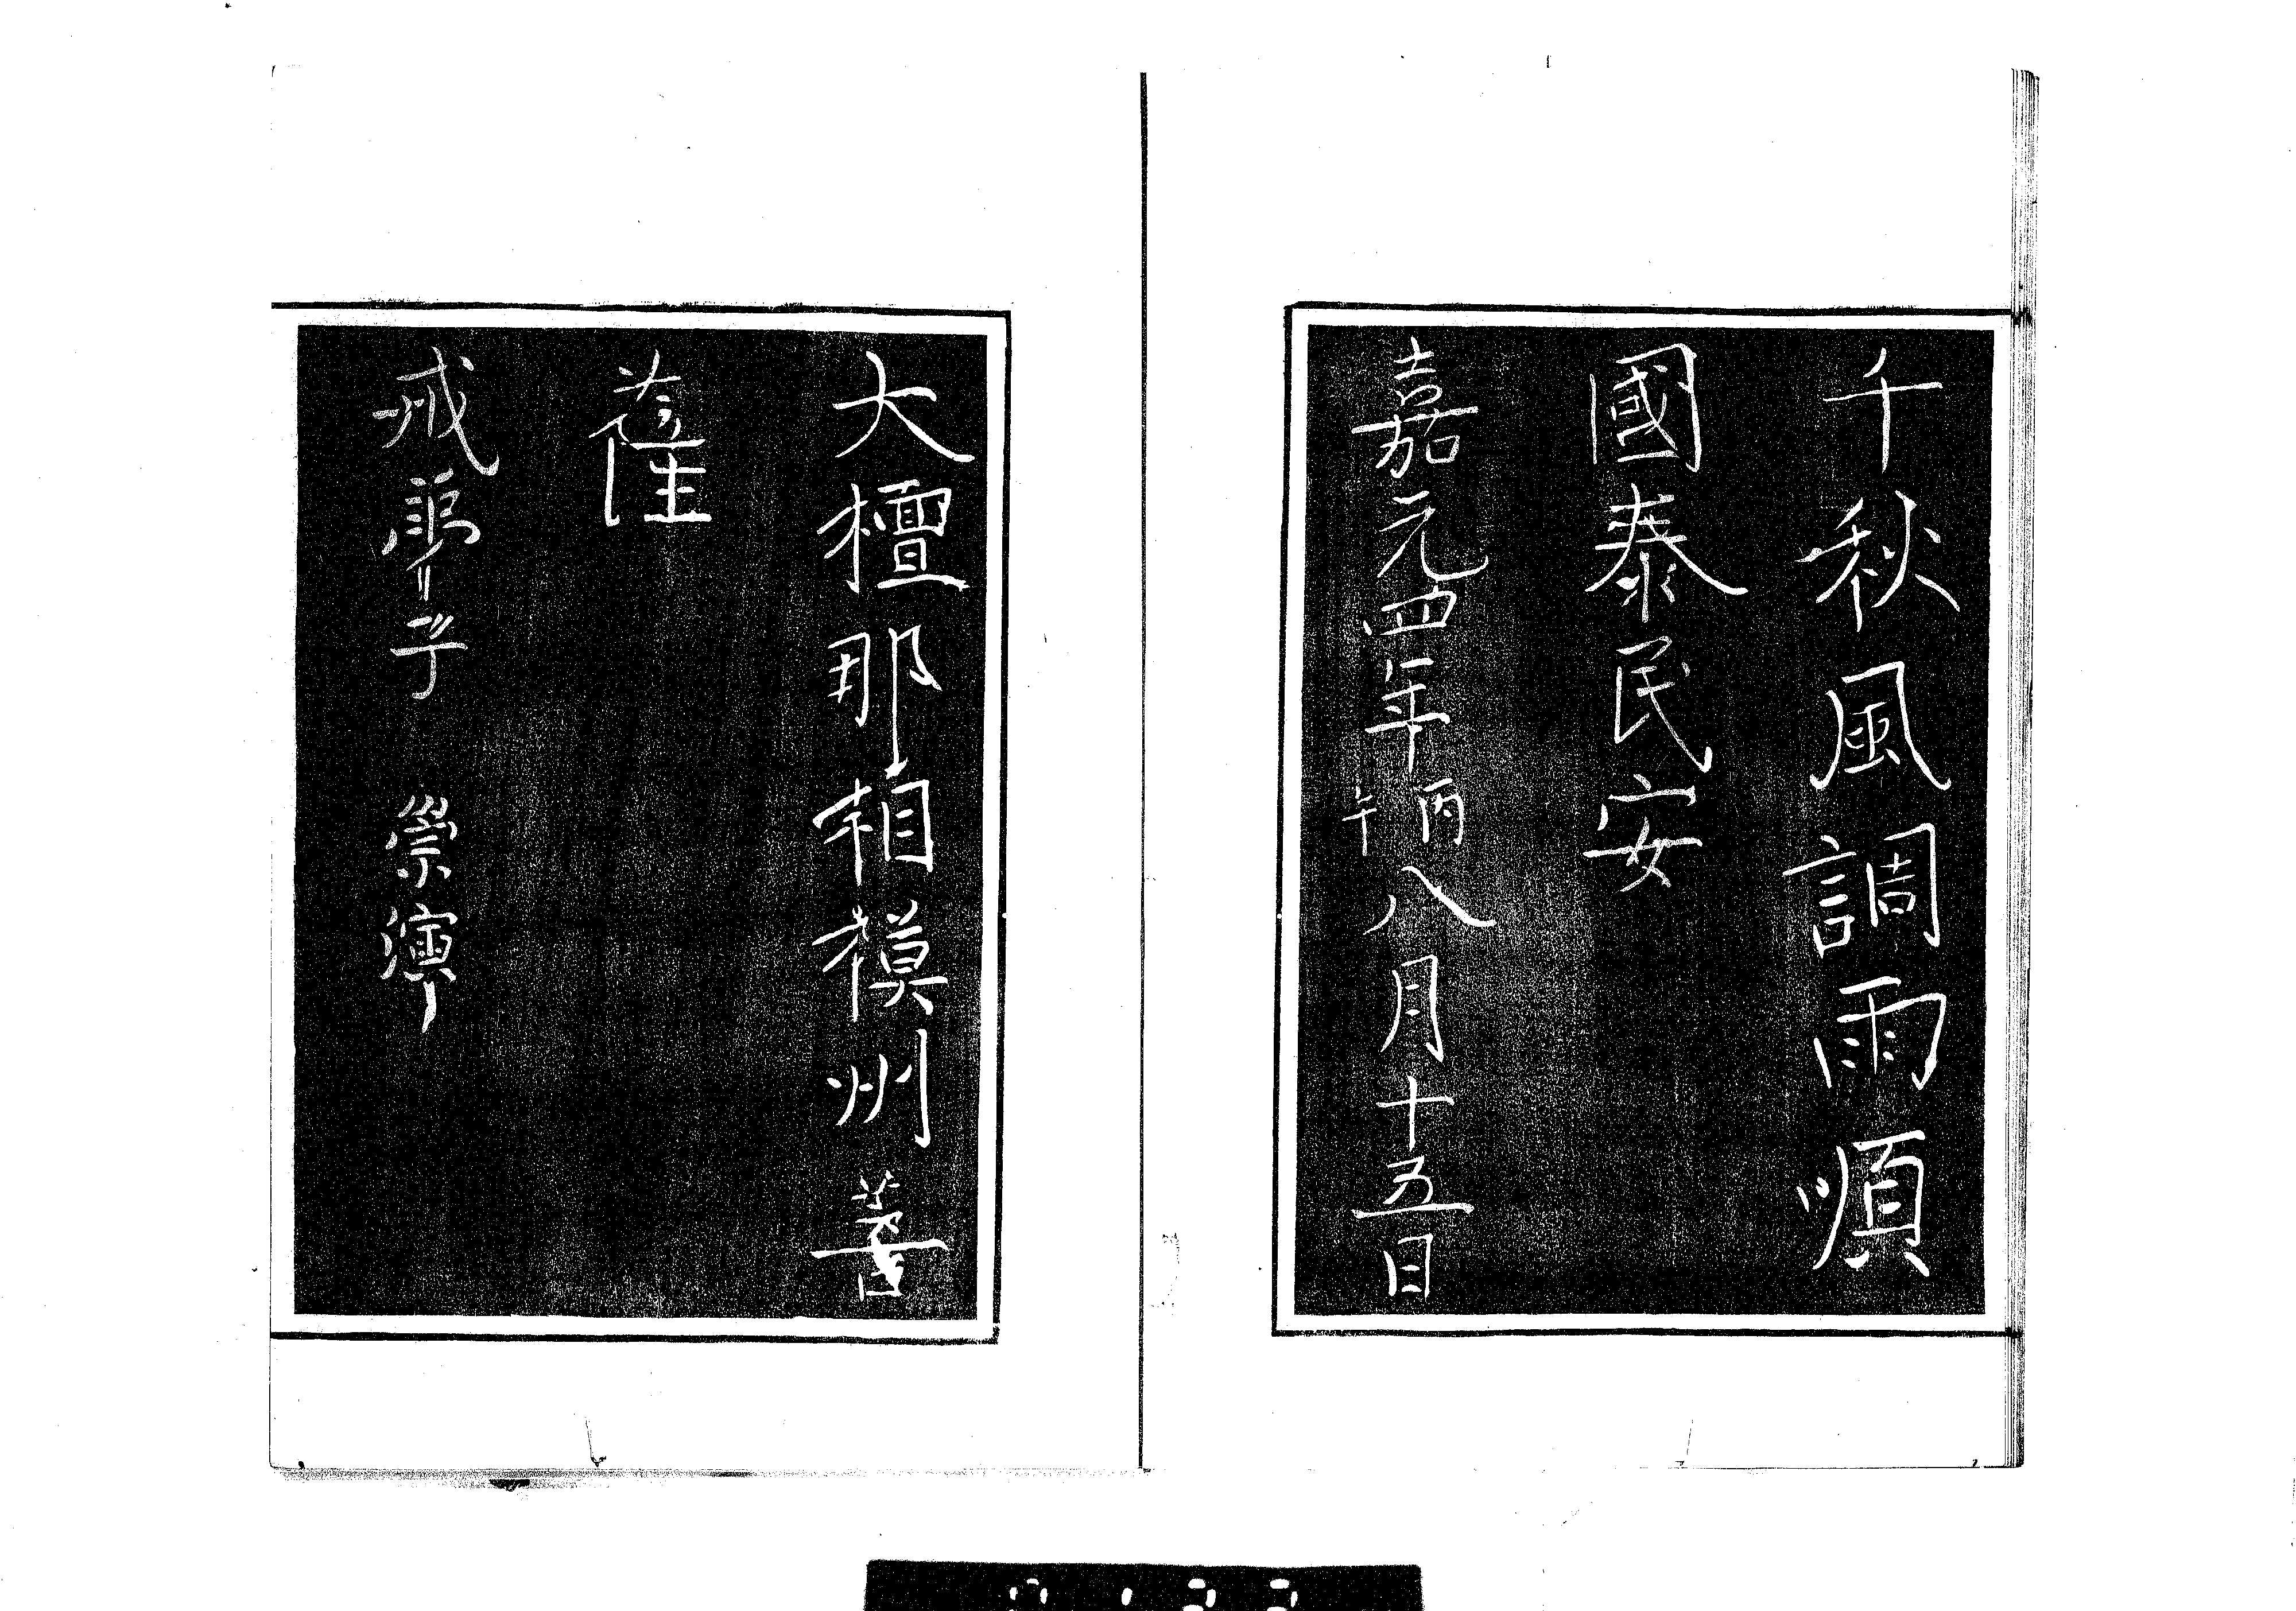 千秋風調雨順
國泰民安
嘉元四年丙午八月十五日
大檀那相模州菩
薩
戒弟子 崇演